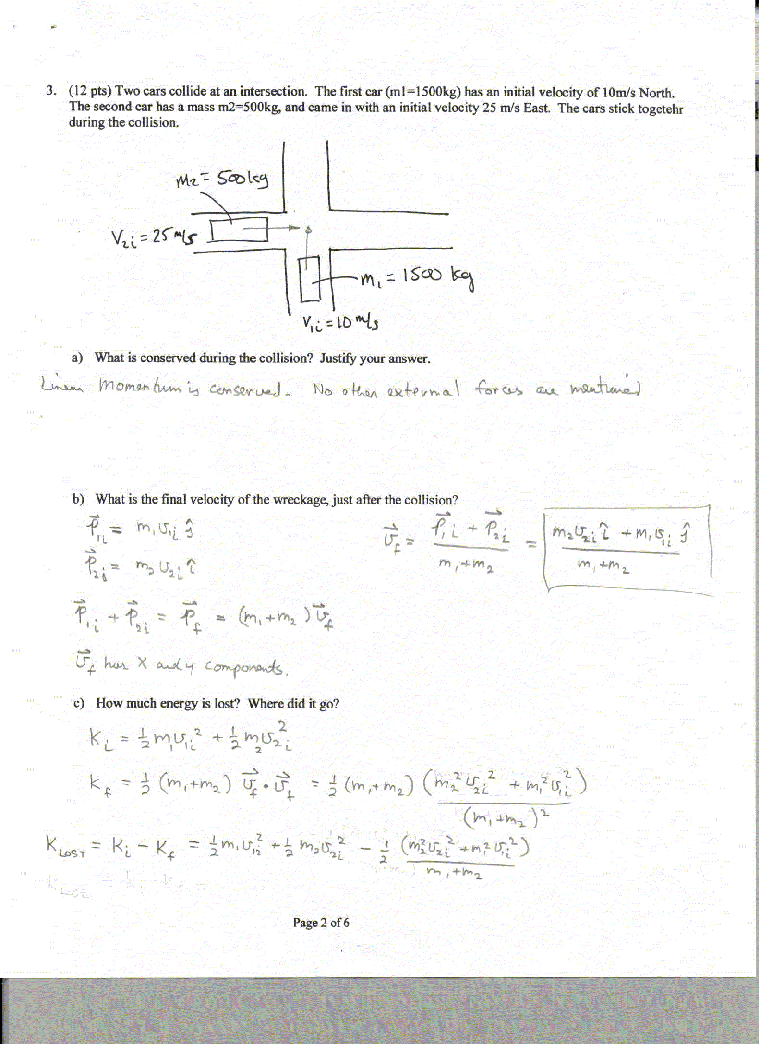 3. (12 pts) Two cars collide at an intersection. The first car (m1=1500kg) has an initial velocity of 10m/s North.
The second car has a mass m2=500kg, and came in with an initial velocity 25 m/s East. The cars stick togetehr
during the collision.
m₂ = 500 kg
V₂i = 25 m/s
m₁ = 1500 kg
V₁i = 10 m/s
a) What is conserved during the collision? Justify your answer.
Linear Momentum is conserved. No other external forces are mentioned
b) What is the final velocity of the wreckage, just after the collision?
P⃗₁i = m₁v₁i ĵ
v⃗f = (P⃗₁i + P⃗₂i)/(m₁+m₂) = (m₂v₂i î + m₁v₁i ĵ)/(m₁+m₂)
P⃗₂i = m₂v₂i î
P⃗₁i + P⃗₂i = P⃗f = (m₁+m₂)v⃗f
v⃗f has X and y components.
c) How much energy is lost? Where did it go?
Ki = ½m₁v₁i² + ½m₂v₂i²
Kf = ½(m₁+m₂) v⃗f · v⃗f = ½(m₁+m₂) (m₂²v₂i² + m₁²v₁i²)/(m₁+m₂)²
KLOST = Ki − Kf = ½m₁v₁i² + ½m₂v₂i² − ½ (m₂²v₂i² + m₁²v₁i²)/(m₁+m₂)
Page 2 of 6